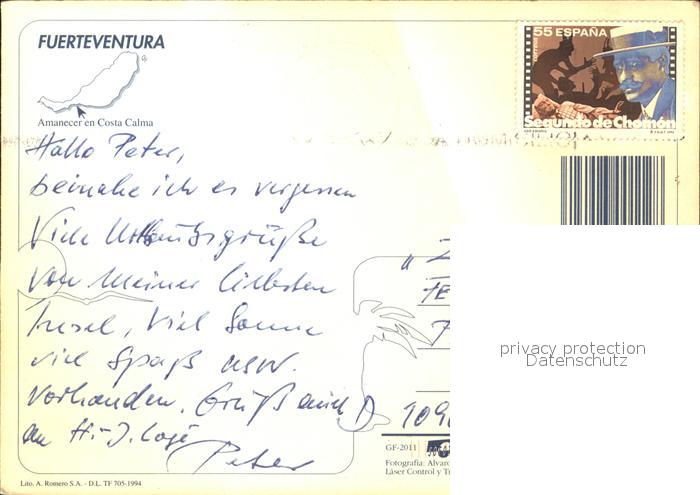 FUERTEVENTURA
Amanecer en Costa Calma
55 ESPAÑA
correos
Segundo de Chomón
Hallo Peter,
beinahe ich es vergessen
Viele Urlaubsgrüße
von meiner liebsten
Insel, Viel Sonne
viel Spaß usw.
vorhanden. Gruß auch
an H.-J.
Peter
privacy protection
Datenschutz
GF-2011
Fotografía: Alvaro
Láser Control y Tr
Lito. A. Romero S.A. - D.L. TF 705-1994